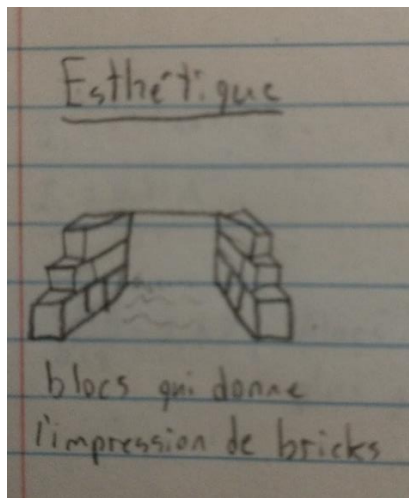 Esthétique
blocs qui donne
l'impression de bricks